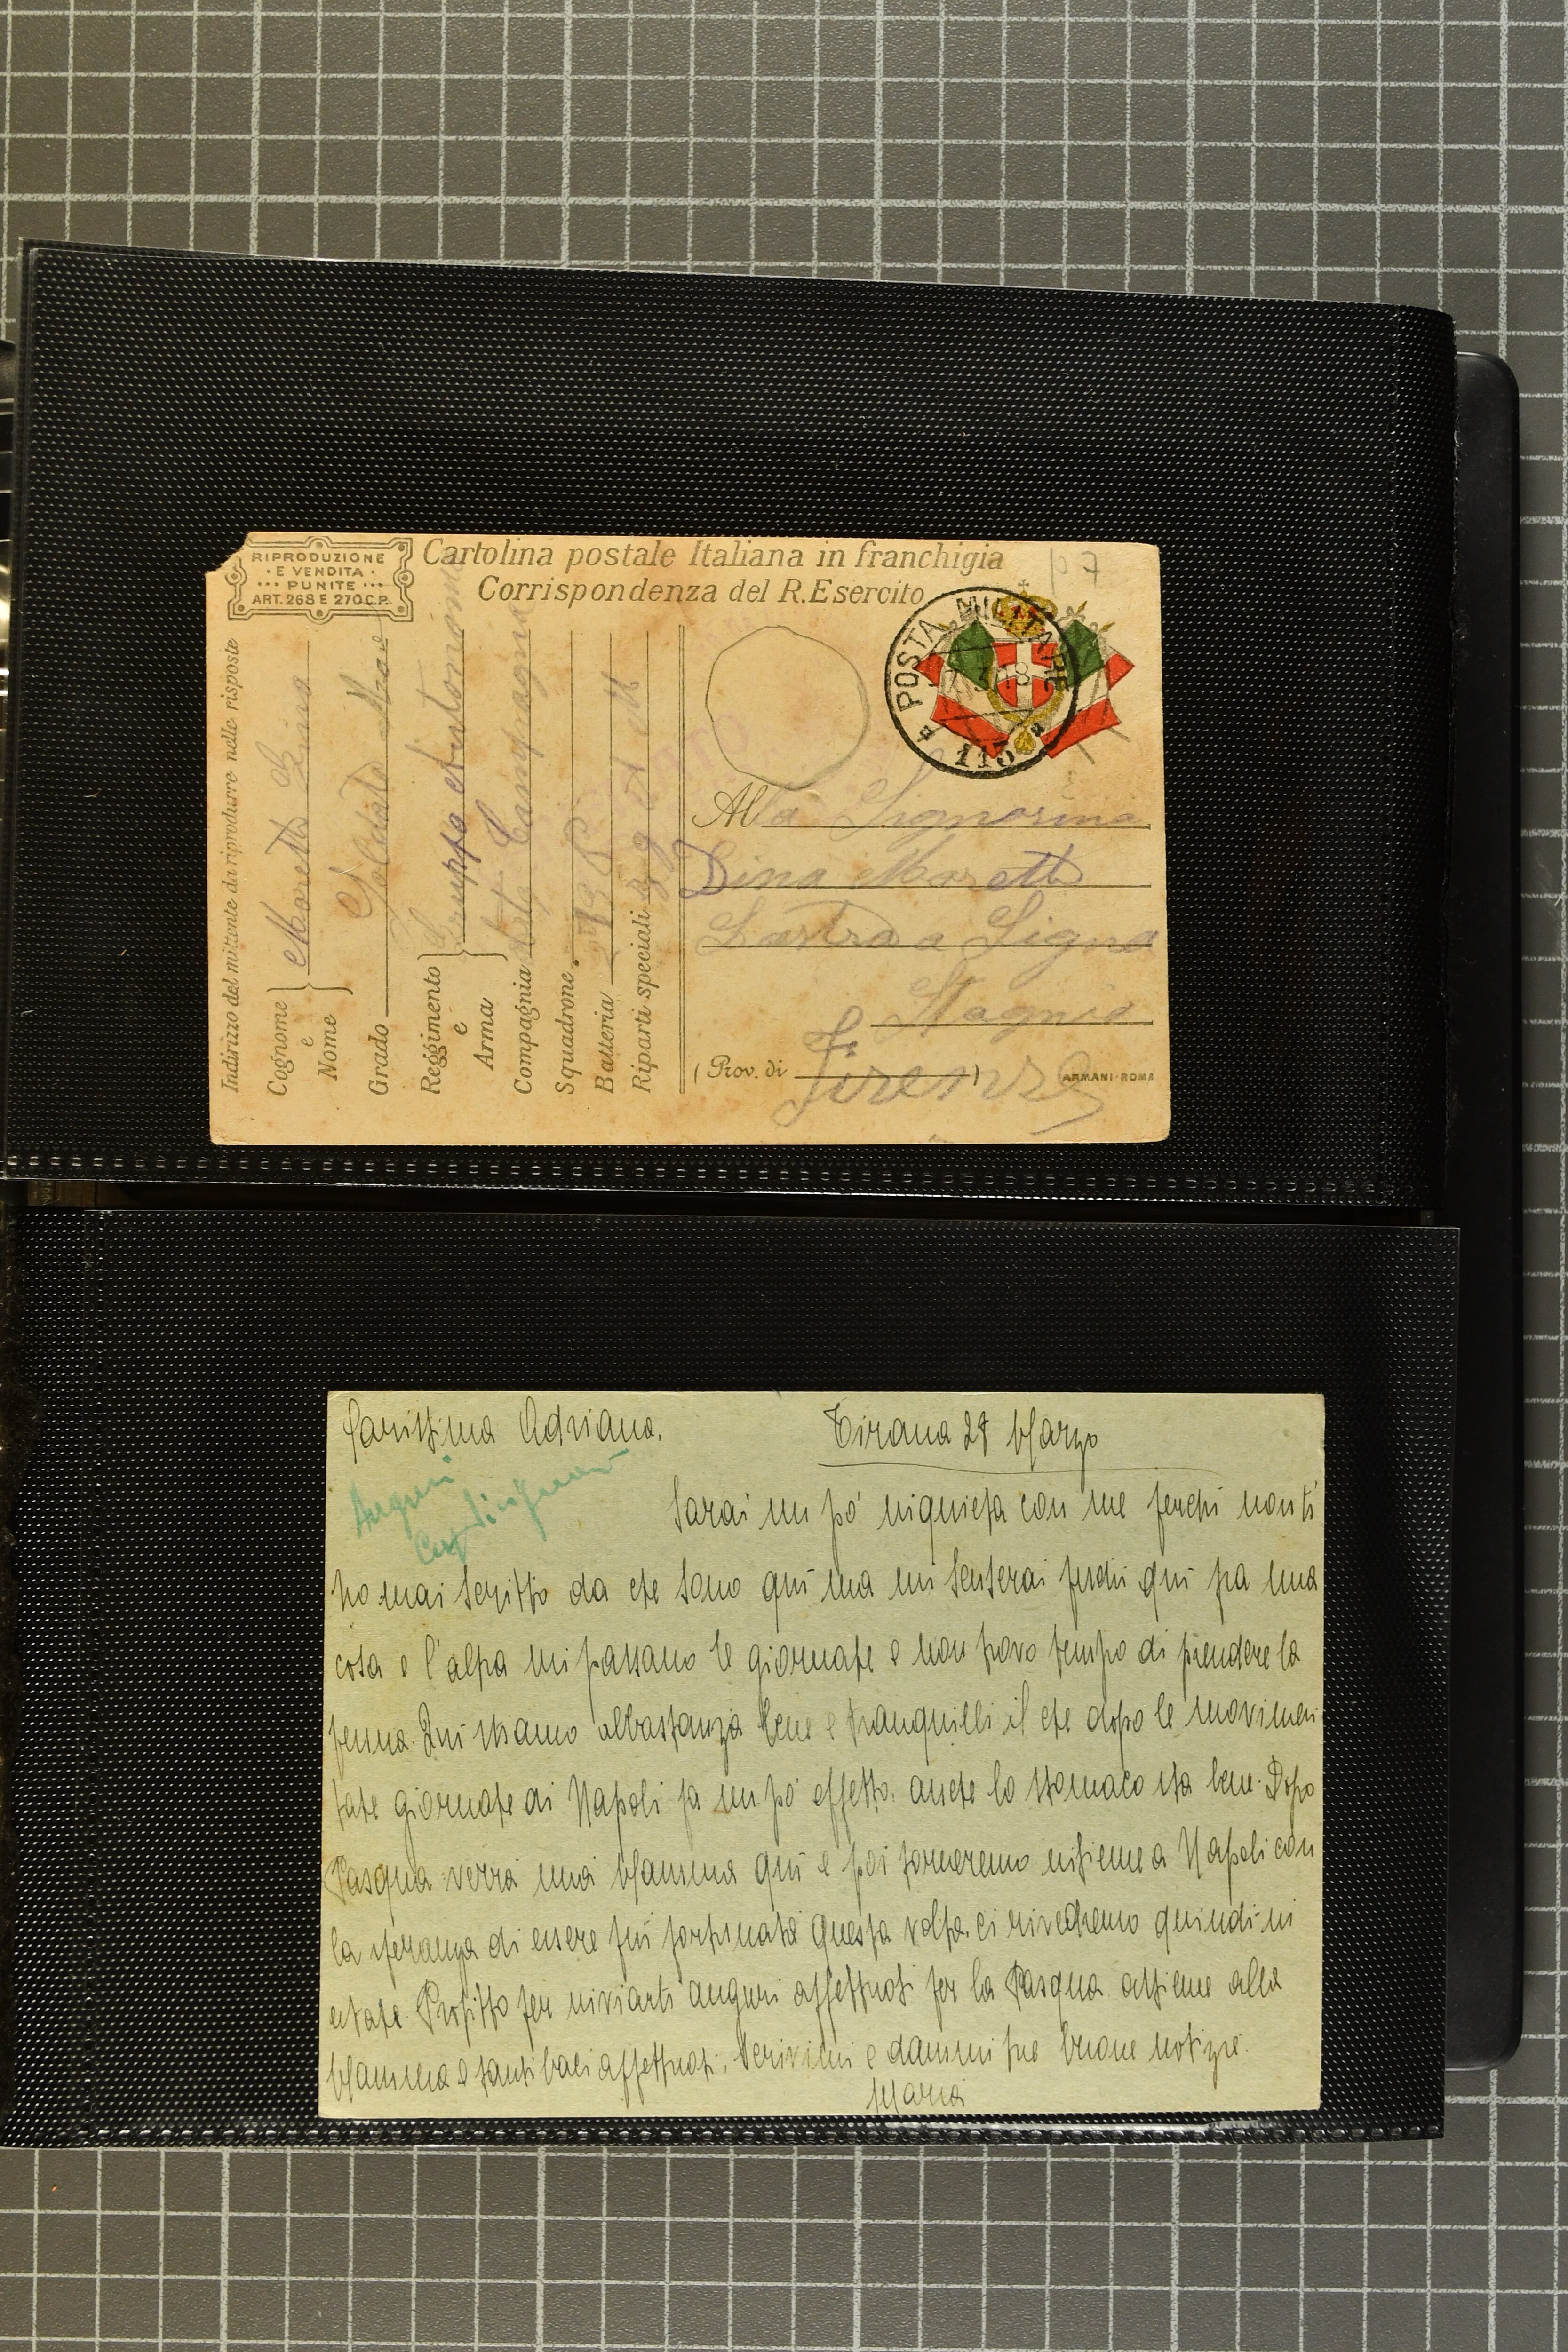 RIPRODUZIONE
E VENDITA
PUNITE
ART. 268 E 270 C.P.
Cartolina postale Italiana in franchigia
Corrispondenza del R. Esercito
POSTA MILITARE
113
Indirizzo del mittente da riprodurre nelle risposte
Cognome e Nome Moretti Gino
Grado Soldato
Reggimento e Arma Gruppo Autonomo
Compagnia Campagna
Squadrone
Batteria
Riparti speciali
Alla Signorina
Dina Moretti
Lastra a Signa
Stagnio
(Prov. di Firenze)
ARMANI-ROMA
Carissima Adriana. Tirana 29 Marzo
Auguri
Sarai un po' inquieta con me perchè non ti
ho mai scritto da che sono qui ma mi scuserai perchè qui fra una
cosa e l'altra mi passano le giornate e non trovo tempo di prendere la
penna. Qui stiamo abbastanza bene e tranquilli il che dopo le movimen
tate giornate di Napoli fa un po' effetto. anche lo stomaco sta bene. Dopo
Pasqua verrà mia Mamma qui e poi torneremo insieme a Napoli con
la speranza di essere più fortunate questa volta. ci rivedremo quindi in
estate. Profitto per inviarti auguri affettuosi per la Pasqua assieme alla
Mamma e tanti baci affettuosi. Scrivimi e dammi tue buone notizie.
Maria